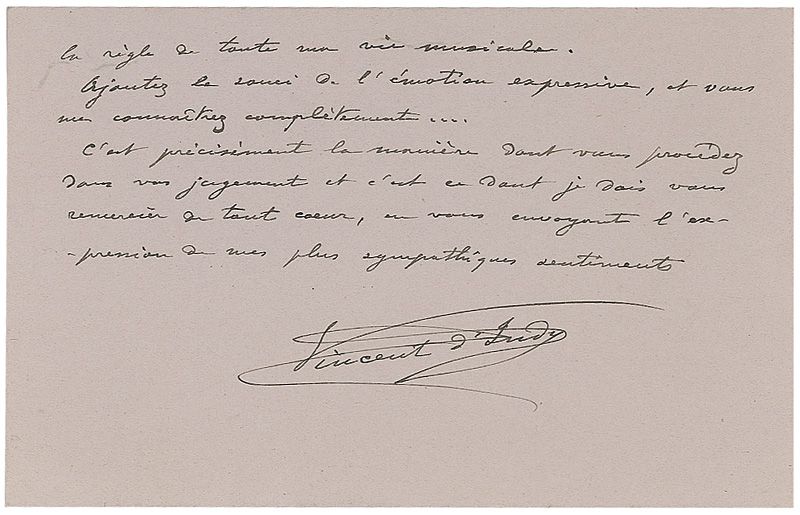 la règle de toute ma vie musicale.
Ajoutez le souci de l'émotion expressive, et vous
me connaîtrez complètement....
C'est précisément la manière dont vous procédez
dans vos jugement et c'est ce dont je dois vous
remercier de tout coeur, en vous envoyant l'ex-
-pression de mes plus sympathiques sentiments
Vincent d'Indy